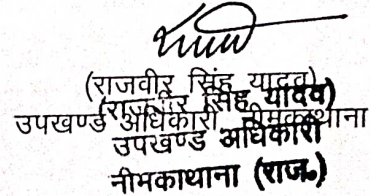 (राजवीर सिंह यादव)
(राजवीर सिंह यादव)
उपखण्ड अधिकारी नीमकाथाना
उपखण्ड अधिकारी
नीमकाथाना (राज॰)